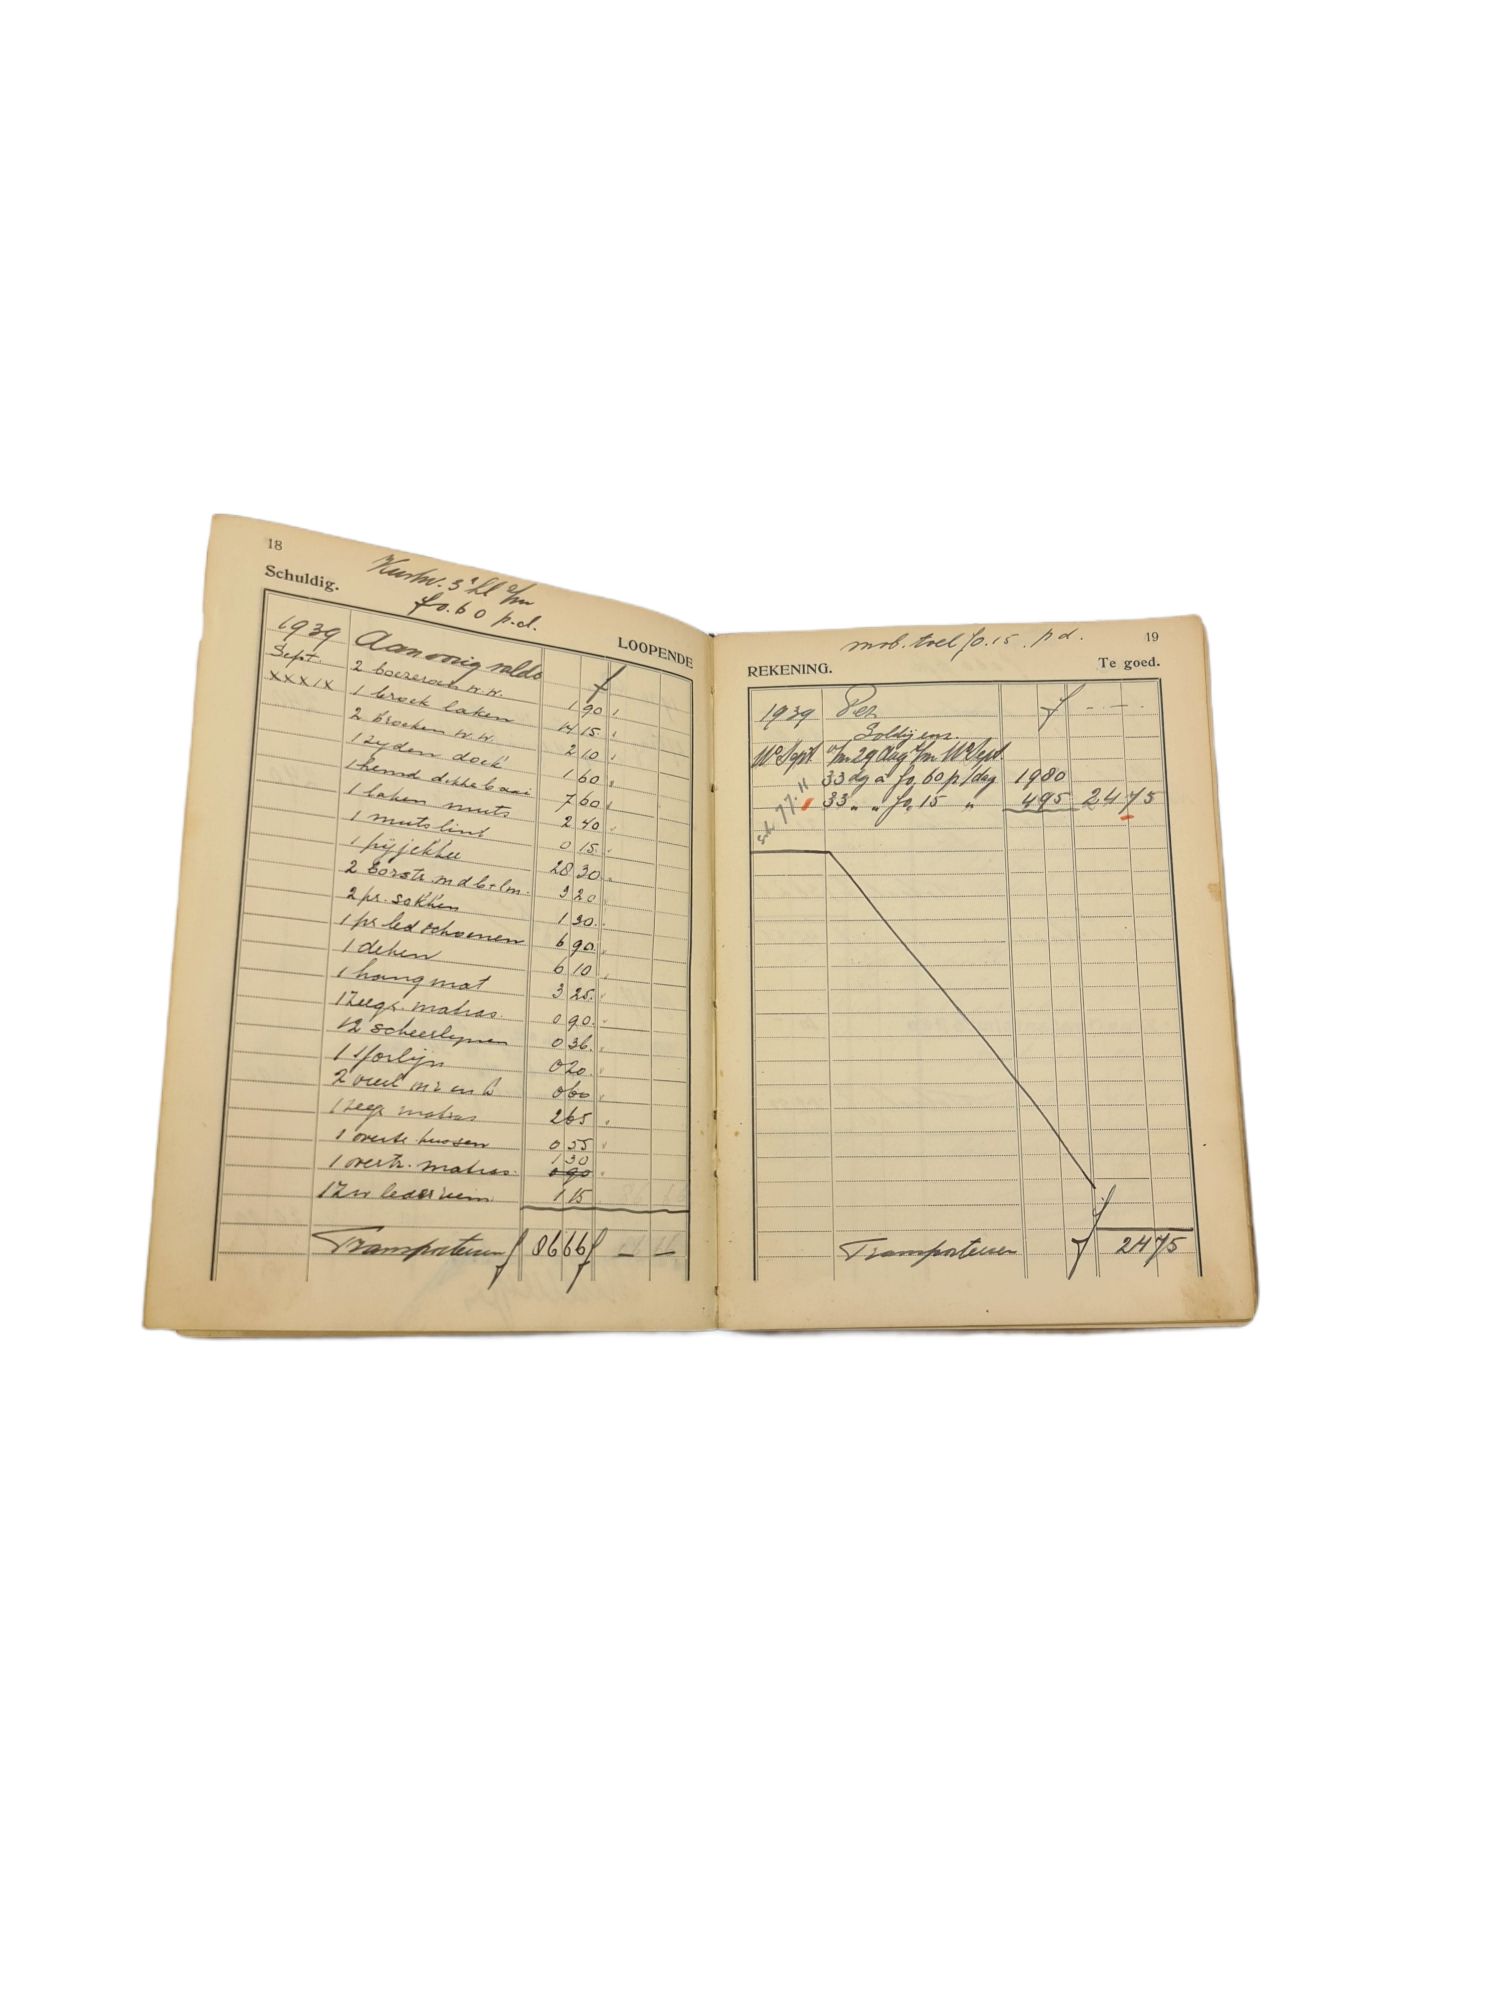 18
Schuldig.
3e kl
f 0.60 p.d.
LOOPENDE
1939 Aanvang saldo f
Sept. 2 boezeroen w.w. 1 90
XXXIX 1 broek laken 14 15
2 broeken w.w. 2 10
1 zyden doek 1 60
1 hemd dikke baai 7 60
1 laken muts 2 40
1 mutslint 0 15
1 pijjekker 28 30
2 borstr. 3 20
2 pr. sokken 1 30
1 pr led schoenen 6 90
1 deken 6 10
1 hangmat 3 25
1 zeegr. matras 0 90
12 scheerlijnen 0 36
1 sjorlijn 0 20
2 0 60
1 zeegr matras 2 65
1 overtr. kussen 0 55
1 30
1 overtr. matras 0 90
1 lederriem 1 15
Transporteeren f 86 66 f — —
mob. toel f 0.15 p d.
19
REKENING.
Te goed.
1939 Per f - — - .
Soldij enz.
Sept 29 Aug t/m Sept.
33 dg a f 0,60 p/dag 19 80
33 " " f 0,15 " 4 95 24 75
Transporteeren f 24 75